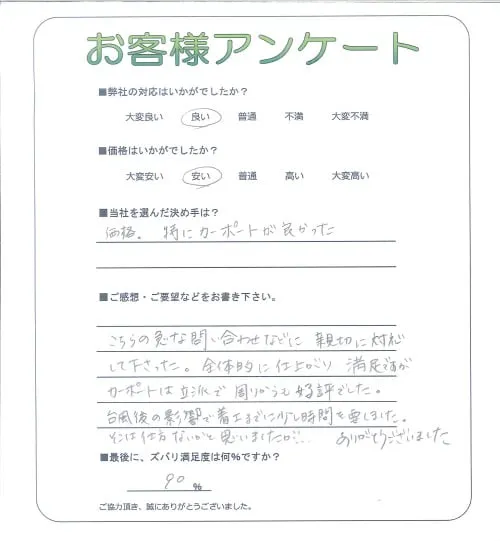 お客様アンケート
■弊社の対応はいかがでしたか？
大変良い 良い 普通 不満 大変不満
■価格はいかがでしたか？
大変安い 安い 普通 高い 大変高い
■当社を選んだ決め手は？
価格。特にカーポートが良かった
■ご感想・ご要望などをお書き下さい。
こちらの急な問い合わせなどに 親切に対応
して下さった。全体的に仕上がり 満足ですが
カーポートは立派で周りからも好評でした。
台風後の影響で着工までに少し時間を要しました。
そこは仕方ないかと思いましたが… ありがとうございました
■最後に、ズバリ満足度は何％ですか？
90 ％
ご協力頂き、誠にありがとうございました。